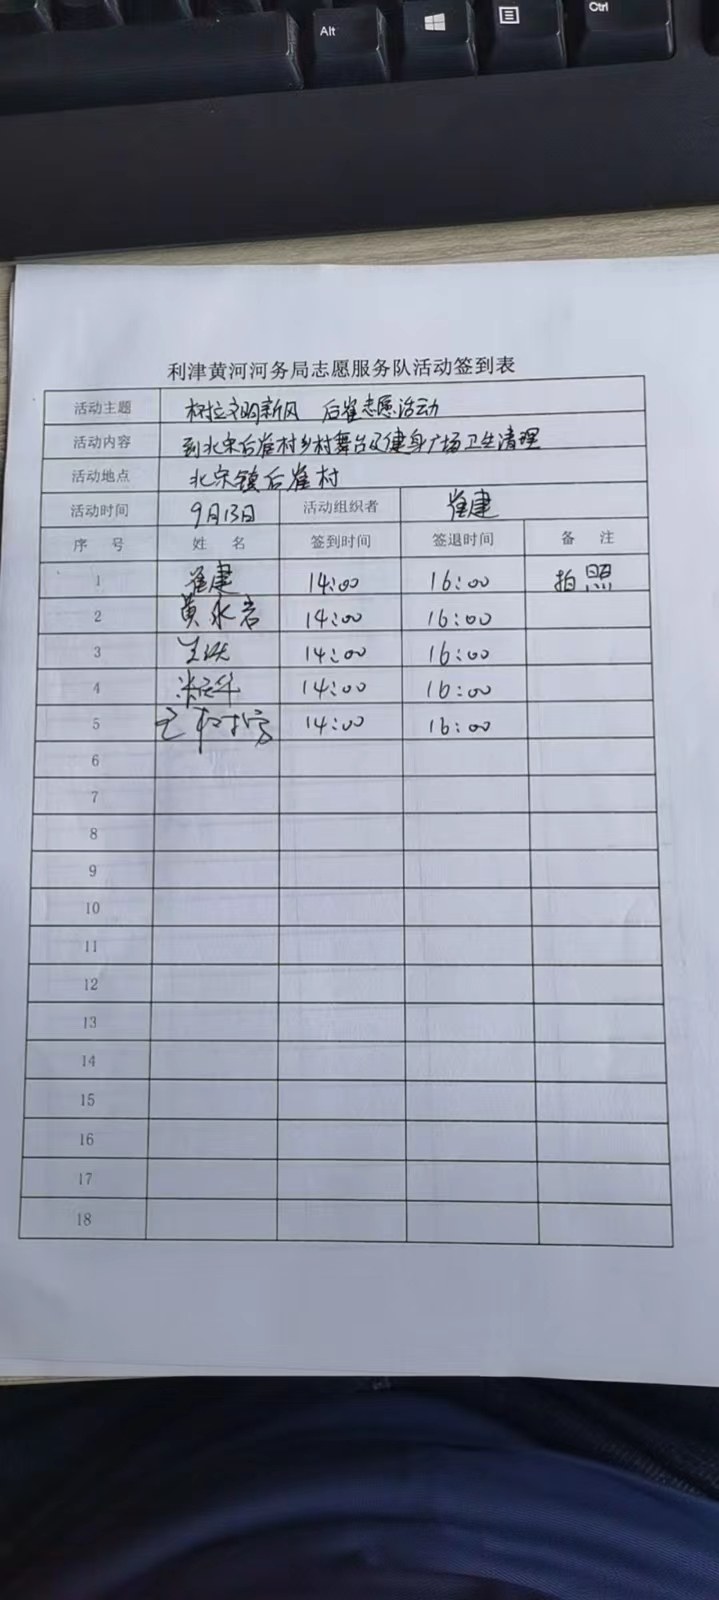 Alt
Ctrl
利津黄河河务局志愿服务队活动签到表
活动主题 树立文明新风 后崔志愿活动
活动内容 到北宋后崔村乡村舞台及健身广场卫生清理
活动地点 北宋镇后崔村
活动时间 9月13日 活动组织者 崔建
序 号 姓 名 签到时间 签退时间 备 注
1 崔建 14:00 16:00 拍照
2 黄永岩 14:00 16:00
3 14:00 16:00
4 14:00 16:00
5 14:00 16:00
6
7
8
9
10
11
12
13
14
15
16
17
18